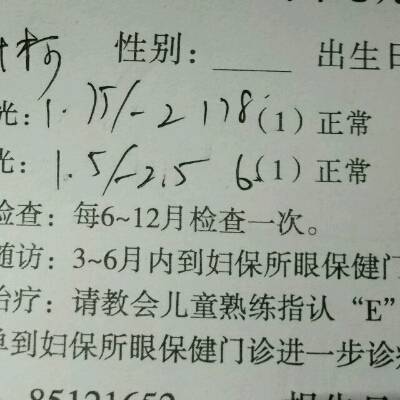 性别：____ 出生日
光：1.75/-2 178（1）正常
光：1.5/-2.5 65（1）正常
检查：每6~12月检查一次。
随访：3~6月内到妇保所眼保健门
治疗：请教会儿童熟练指认“E”
单到妇保所眼保健门诊进一步诊疗
85121652